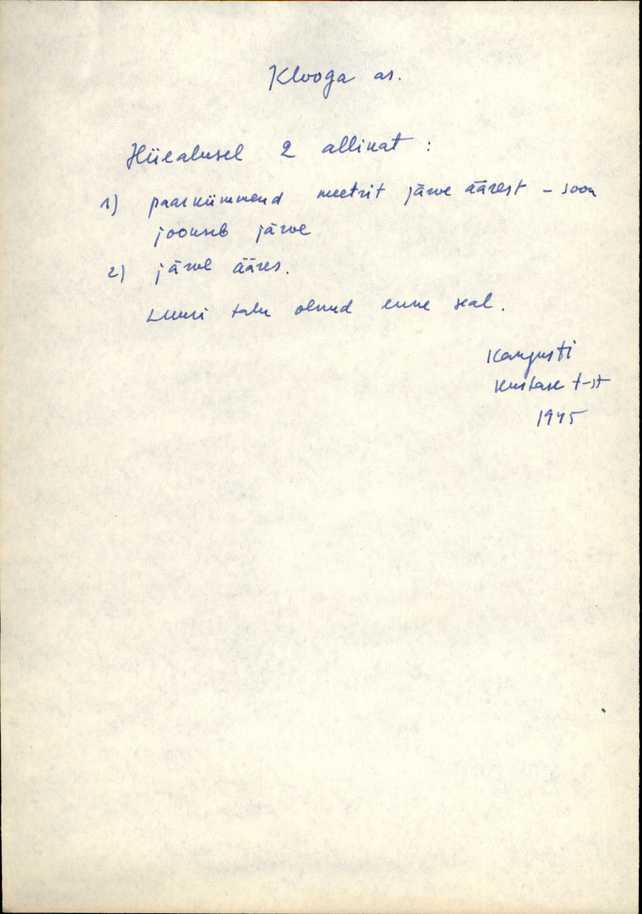 Klooga as.
Hiiealusel 2 allikat :
1) paarkümmend meetrit järve äärest – soon
jookseb järve
2) järve ääres.
Luusi talu olnud enne seal.
Kangusti
t-st
1945